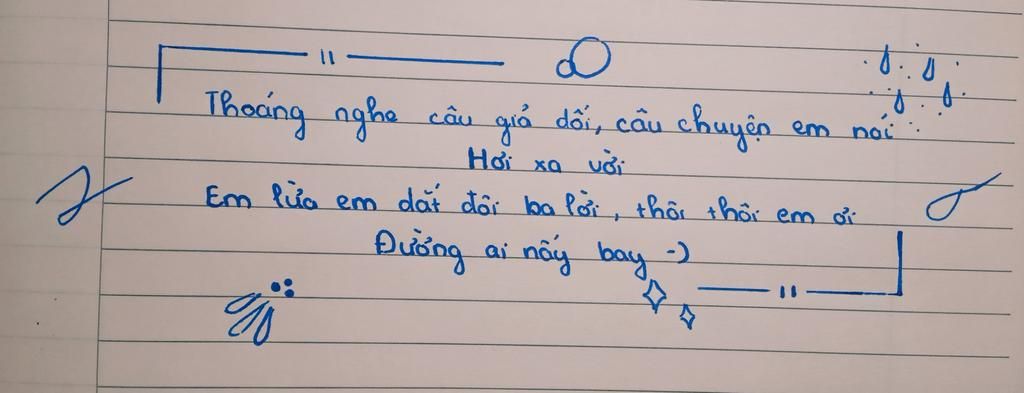 Thoáng nghe câu giả dối, câu chuyện em nói
Hơi xa vời
Em lừa em dắt đôi ba lời, thôi thôi em ơi
Đường ai nấy bay -)